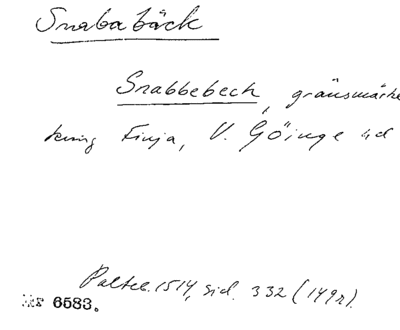 Snababäck
Snabbebeck, gränsmärke
kring Finja, V. Göinge hd
Palteb. 1514, sid. 332 (149r).
6583.